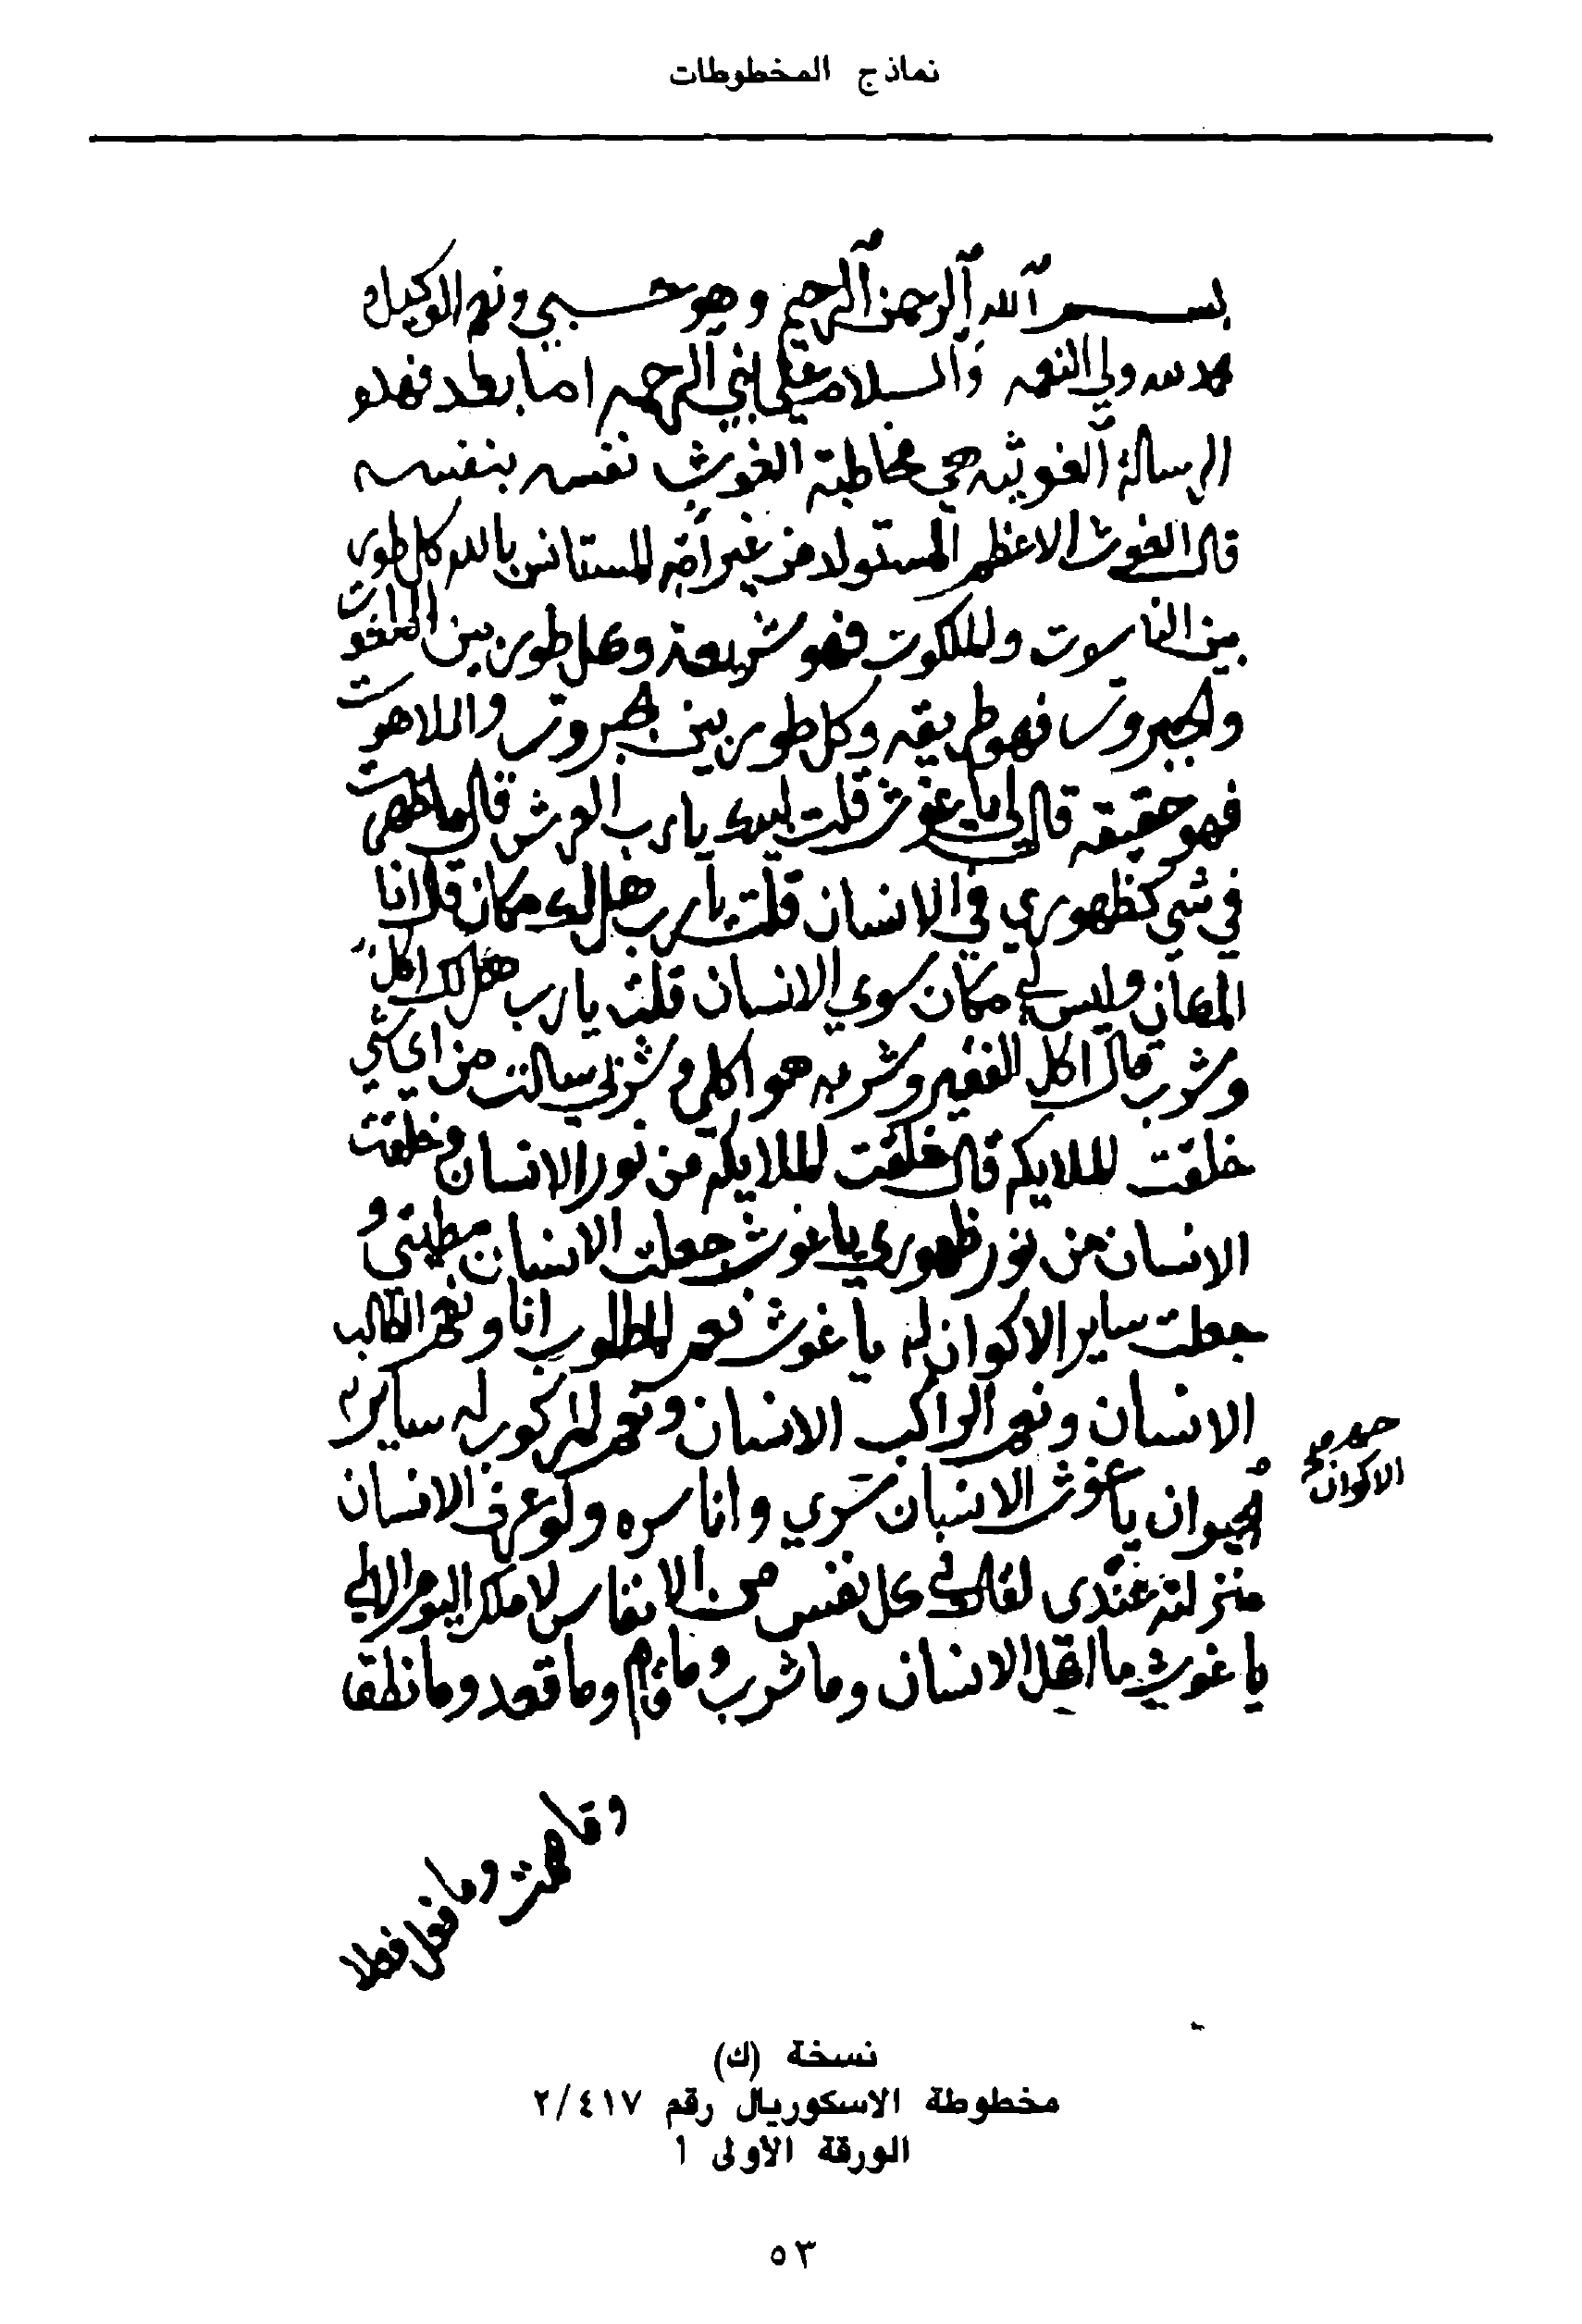 نماذج المخطوطات
بسم الله الرحمن الرحيم وهو حسبي ونعم الوكيل
لله ولي النعمه والسلام علي نبي الرحمه اما بعد فهذه
الرسالة الغوثيه هي مخاطبة الغوث نفسه بنفسه
قال الغوث الاعظم المستانس بالله كل طور
بين الناسوت والملكوت فهو شريعه وكل طور بين الملكوت
والجبروت فهو طريقه وكل طور بين الجبروت واللاهوت
فهو حقيقه قال لي يا غوث قلت لبيك يا رب العرش قال ما ظهرت
في شي كظهوري في الانسان قلت يا رب هل لك مكان قال انا
المكان وليس لي مكان سوي الانسان قلت يا رب هل لك اكل
وشرب قال اكل الفقير وشربه هو اكلي وشربي سالت من اي شي
خلقت الملايكه قال خلقت الملايكة من نور الانسان وخلقت
الانسان من نور ظهوري يا غوث جعلت الانسان مطيتي و
جعلت ساير الاكوان له يا غوث نعم المطلوب انا ونعم الطالب
الانسان ونعم الراكب الانسان ونعم المركوب له ساير
الاكوان
يا غوث الانسان سري وانا سره ولو عرف الانسان
منزلته عندي لقال في كل نفس من الانفاس لمن الملك اليوم الا لي
يا غوث ما اكل الانسان وما شرب وما قام وما قعد وما نطق
وما فعل فعلا
نسخة (ك)
مخطوطة الاسكوريال رقم ٢/٤١٧
الورقة الأولى ١
٥٣